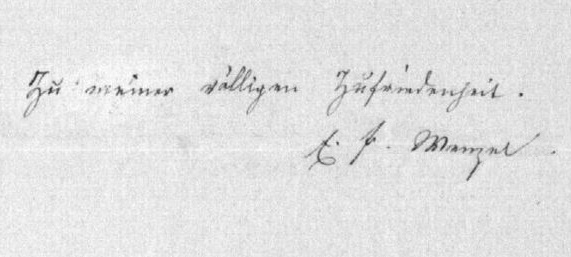 Zu meiner völligen Zufriedenheit.
E. F. Wenzel.